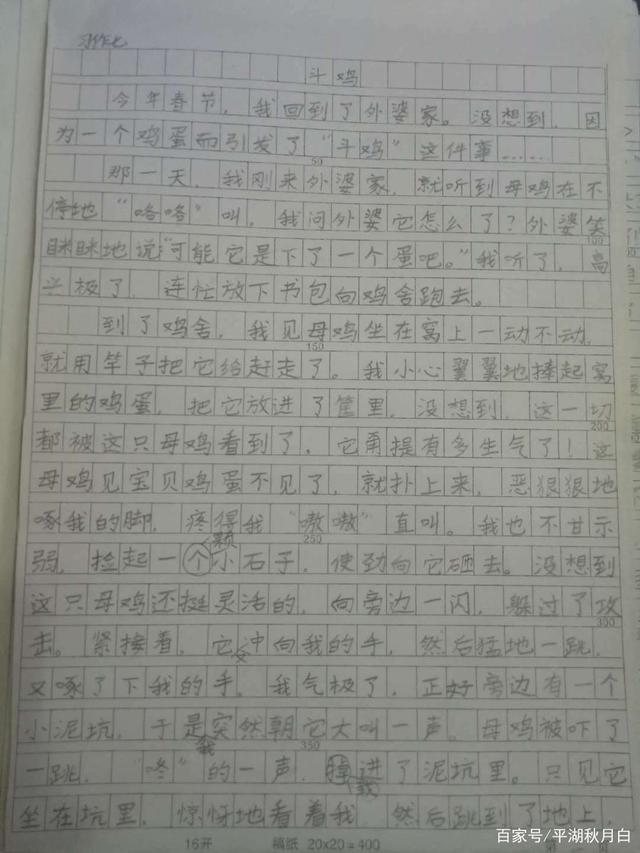 习作七
斗鸡
今年春节，我回到了外婆家。没想到，因
为一个鸡蛋而引发了“斗鸡”这件事……
50
那一天，我刚来外婆家，就听到母鸡在不
停地“咯咯”叫，我问外婆它怎么了？外婆笑
100
眯眯地说“可能它是下了一个蛋吧。”我听了，高
兴极了，连忙放下书包向鸡舍跑去。
到了鸡舍，我见母鸡坐在窝上一动不动，
150
就用竿子把它给赶走了。我小心翼翼地捧起窝
里的鸡蛋，把它放进了筐里，没想到，这一切
200
都被这只母鸡看到了，它甭提有多生气了！这
母鸡见宝贝鸡蛋不见了，就扑上来，恶狠狠地
啄我的脚，疼得我“嗷嗷”直叫。我也不甘示
颗 250
弱，捡起一个小石子，使劲向它砸去。没想到
这只母鸡还挺灵活的，向旁边一闪，躲过了攻
300
击。紧接着，它冲向我的手，然后猛地一跳，
又
又啄了下我的手。我气极了，正好旁边有一个
小泥坑，于是突然朝它大叫一声。母鸡被吓了
我 350
一跳，“咚”的一声，掉进了泥坑里。只见它
栽
坐在坑里，惊讶地看着我，然后跳到了地上，
16开 稿纸 20×20=400
百家号/平湖秋月白